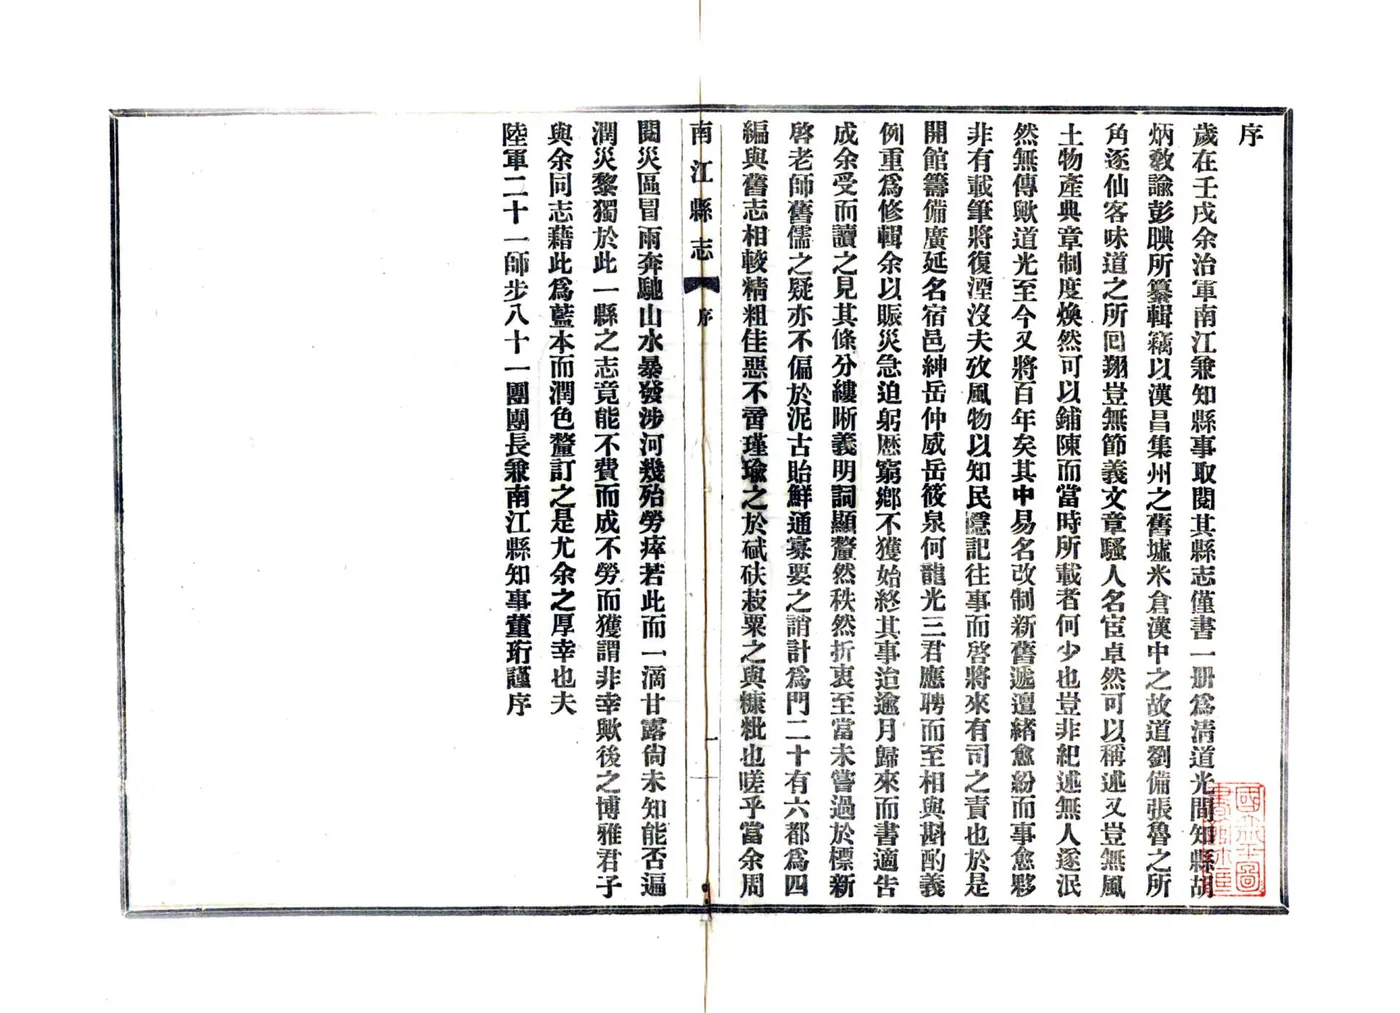 序
歲在壬戌余治軍南江兼知縣事取閱其縣志僅書一册爲清道光間知縣胡
炳敎諭彭映所纂輯竊以漢昌集州之舊墟米倉漢中之故道劉備張魯之所
角逐仙客味道之所回翔豈無節義文章騷人名宦卓然可以稱述又豈無風
土物產典章制度煥然可以鋪陳而當時所載者何少也豈非紀述無人遂泯
然無傳歟道光至今又將百年矣其中易名改制新舊遞邅緖愈紛而事愈夥
非有載筆將復湮沒夫攷風物以知民隱記往事而啓將來有司之責也於是
開館籌備廣延名宿邑紳岳仲威岳筱泉何龍光三君應聘而至相與斟酌義
例重爲修輯余以賑災急迫躬歷窮鄕不獲始終其事迨逾月歸來而書適告
成余受而讀之見其條分縷晰義明詞顯釐然秩然折衷至當未嘗過於標新
啓老師舊儒之疑亦不偏於泥古貽鮮通寡要之誚計爲門二十有六都爲四
編與舊志相較精粗佳惡不啻瑾瑜之於碔砆菽粟之與糠粃也嗟乎當余周
南江縣志 序 一
閱災區冒雨奔馳山水暴發涉河幾殆勞瘁若此而一滴甘露尙未知能否遍
潤災黎獨於此一縣之志竟能不費而成不勞而獲謂非幸歟後之博雅君子
與余同志藉此爲藍本而潤色釐訂之是尤余之厚幸也夫
陸軍二十一師步八十一團團長兼南江縣知事董珩謹序